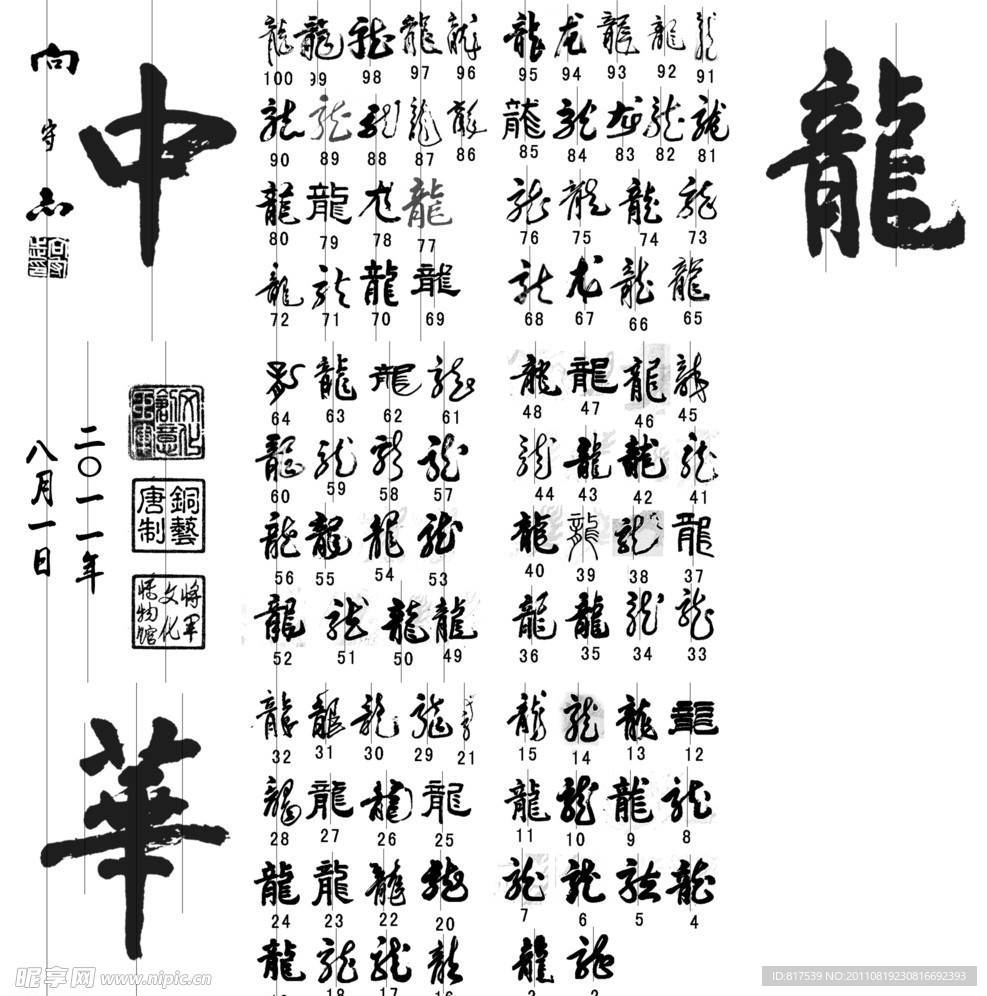 向守志
中
龍
龍 龍 龍 龍 龍 龍 龍 龍 龍 龍
100 99 98 97 96 95 94 93 92 91
龍 龍 龍 龍 龍 龍 龍 龍 龍 龍
90 89 88 87 86 85 84 83 82 81
龍 龍 龍 龍 龍 龍 龍 龍
80 79 78 77 76 75 74 73
龍 龍 龍 龍 龍 龍 龍 龍
72 71 70 69 68 67 66 65
龍 龍 龍 龍 龍 龍 龍 龍
64 63 62 61 48 47 46 45
龍 龍 龍 龍 龍 龍 龍 龍
60 59 58 57 44 43 42 41
龍 龍 龍 龍 龍 龍 龍 龍
56 55 54 53 40 39 38 37
龍 龍 龍 龍 龍 龍 龍 龍
52 51 50 49 36 35 34 33
龍 龍 龍 龍 龍 龍 龍 龍 龍
32 31 30 29 21 15 14 13 12
龍 龍 龍 龍 龍 龍 龍 龍
28 27 26 25 11 10 9 8
龍 龍 龍 龍 龍 龍 龍 龍
24 23 22 20 7 6 5 4
龍 龍 龍 龍 龍 龍
18 17 16 3 2
文化
創意
銅藝
唐制
将军
文化
博物馆
二〇一一年
八月一日
華
昵享网 www.nipic.cn
ID:817539 NO:20110819230816692393